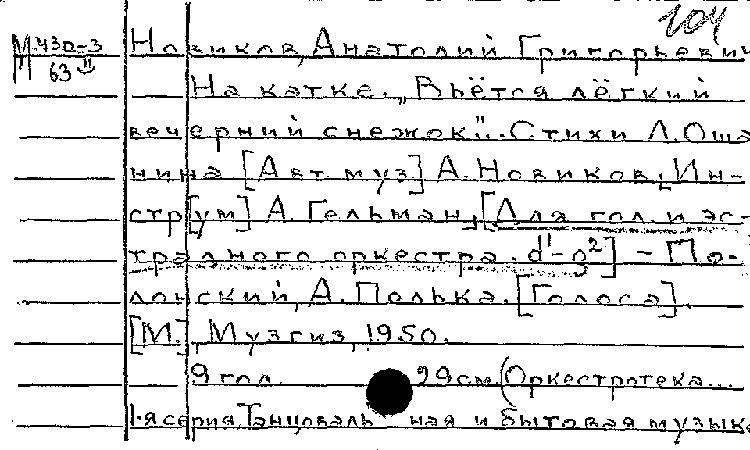 204
М 430-3
63
Новиков, Анатолий Григорьевич
На катке. „Вьётся лёгкий
вечерний снежок". Стихи Л. Оша-
нина [Авт. муз] А. Новиков, Ин-
стр[ум] А. Гельман, [Для гол. и эс-
традного оркестра. d¹-g²] - По-
лонский, А. Полька. [Голоса].
[М.], Музгиз, 1950.
9 гол. 29 см (Оркестротека...
1-я серия, Танцоваль ная и бытовая музыка